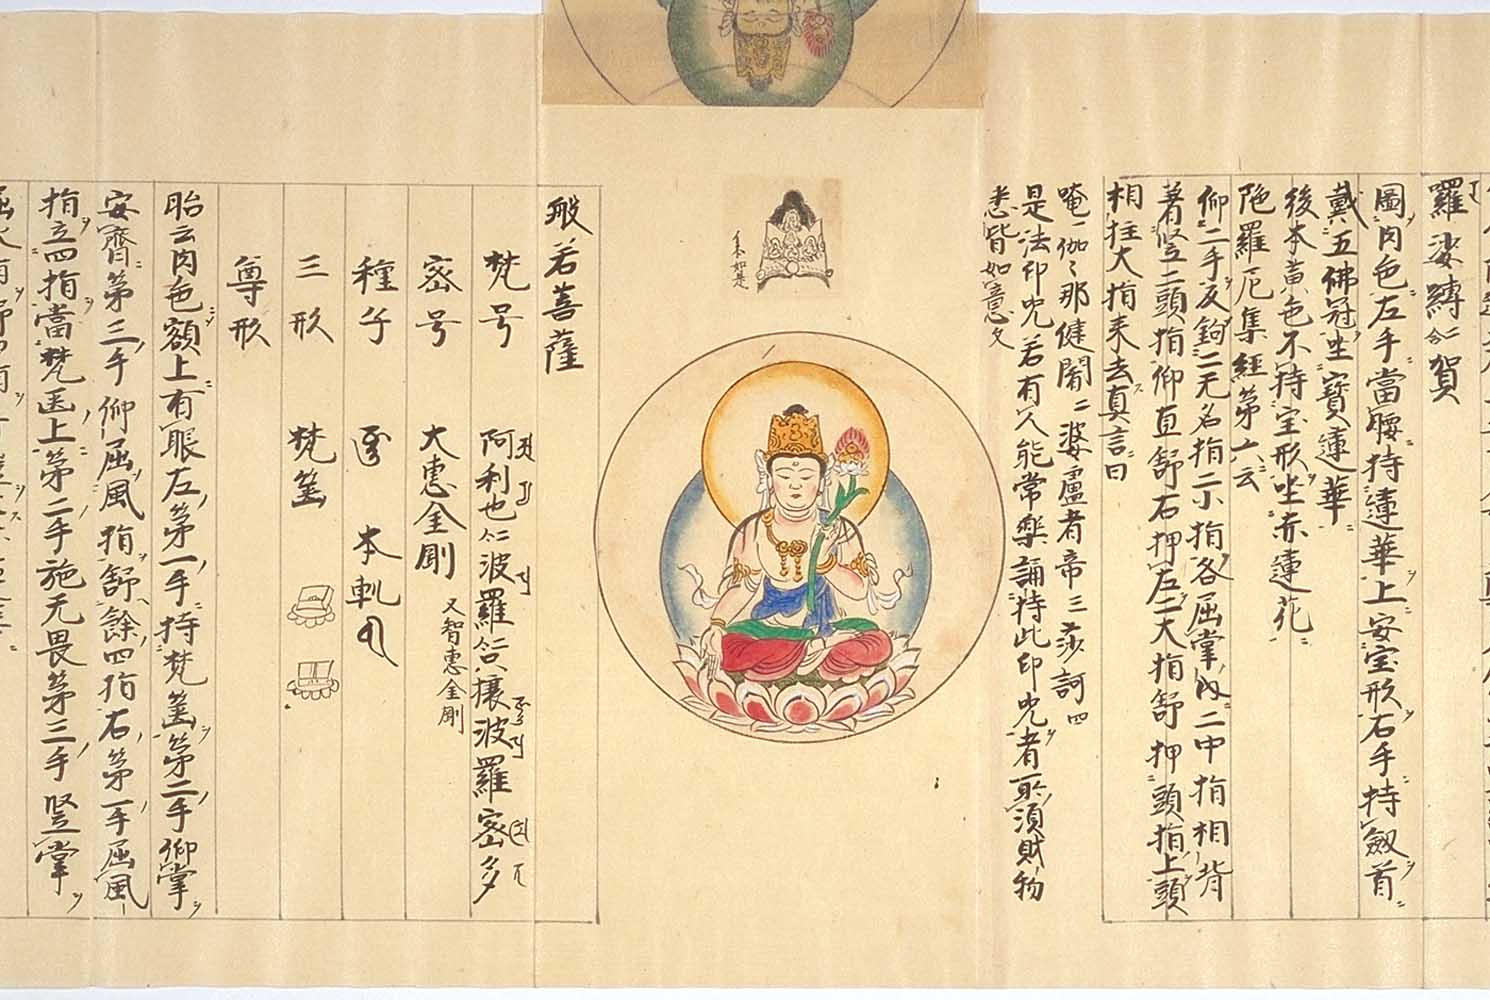 羅娑縛二合賀
圖肉色左手當腰持蓮華上安宝形右手持劔首
戴五佛冠坐寶蓮華
後本黄色不持宝形坐赤蓮花
陁羅尼集經第六云
仰二手反鉤二无名指二小指各屈掌内二中指相背
著竪二頭指仰直舒右押左二大指舒押頭指上頭
相拄大指来去真言曰
唵一伽々那健闍二婆盧者帝三莎訶四
是法印咒若有人能常樂誦持此印咒者所須財物
悉皆如意文
般若菩薩
梵号 阿利也二合波羅二合只攘波羅密多
密号 大恵金剛 又智恵金剛
種子 本軌
三形 梵筺
尊形
胎云肉色額上有眼左第一手持梵筺第二手仰掌
安齊第三手仰屈風指舒餘四指右第一手屈風
指立四指當梵筺上第二手施无畏第三手竪掌